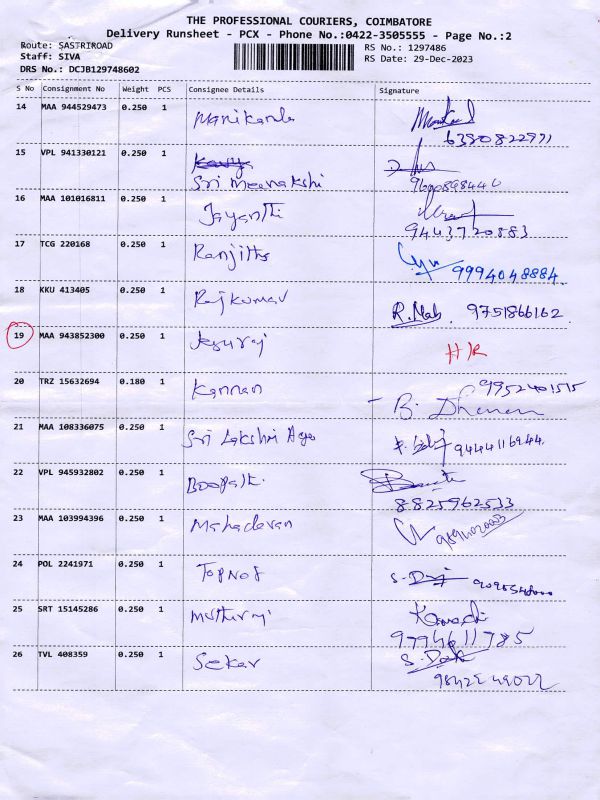 THE PROFESSIONAL COURIERS, COIMBATORE
Delivery Runsheet - PCX - Phone No.:0422-3505555 - Page No.:2
Route: SASTRIROAD
Staff: SIVA
DRS No.: DCJB129748602
RS No.: 1297486
RS Date: 29-Dec-2023
S No Consignment No Weight PCS Consignee Details Signature
14 MAA 944529473 0.250 1 Manikanda
6380822971
15 VPL 941330121 0.250 1
Sri Meenakshi
16 MAA 101016811 0.250 1 Jayanthi
9443720883
17 TCG 220168 0.250 1 Ranjitha
9994048884
18 KKU 413405 0.250 1 Rajkumar
9751866162
19 MAA 943852300 0.250 1
20 TRZ 15632694 0.180 1 Kannan 9952401515
B. Dhanam
21 MAA 108336075 0.250 1 Sri Lakshmi 9444116944
22 VPL 945932802 0.250 1
8825962533
23 MAA 103994396 0.250 1 Mahadevan
24 POL 2241971 0.250 1 Topnot
25 SRT 15145286 0.250 1 Muthuraj
9794611785
26 TVL 408359 0.250 1 Sekar